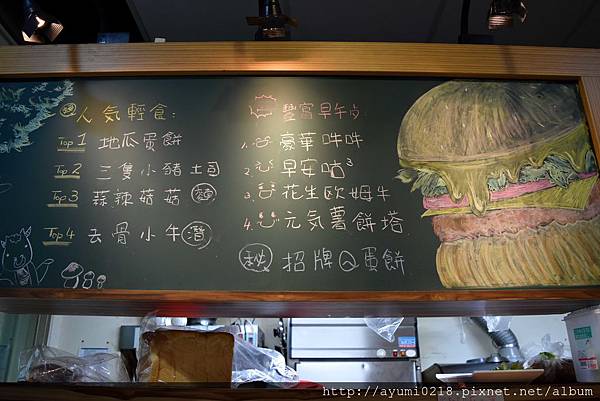 人気輕食:
Top1 地瓜蛋餅
Top2 三隻小豬土司
Top3 蒜辣菇菇 麵
Top4 去骨小牛 潛
豐富早午夕
1. 豪華吽吽
2. 早安喵³
3. 花生歐姆牛
4. 元気薯餅塔
招牌Q蛋餅
http://ayumi0218.pixnet.net/blog